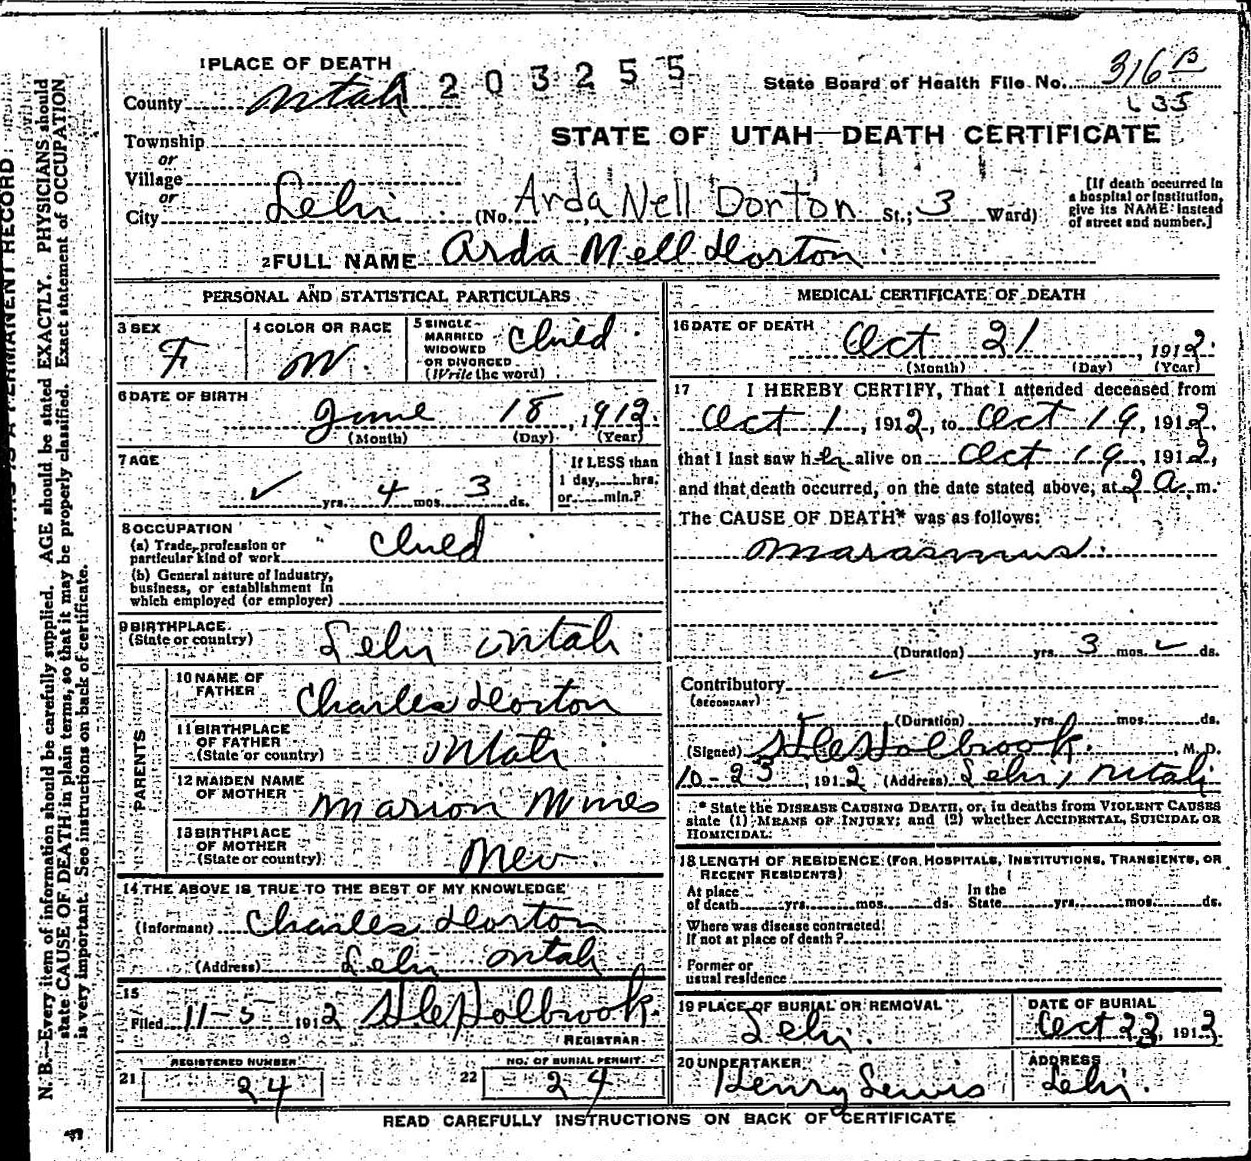 1 PLACE OF DEATH
1203255
State Board of Health File No. 316 B
635
County Utah
STATE OF UTAH—DEATH CERTIFICATE
Township
or
Village
or
City Lehi (No. Arda Nell Dorton St.; 3 Ward)
[If death occurred in
a hospital or institution,
give its NAME instead
of street and number.]
2 FULL NAME Arda Nell Dorton
PERSONAL AND STATISTICAL PARTICULARS
3 SEX
F
4 COLOR OR RACE
W
5 SINGLE
MARRIED
WIDOWED
OR DIVORCED
(Write the word)
Child
6 DATE OF BIRTH
June 18, 1912
(Month) (Day) (Year)
7 AGE
✓ yrs. 4 mos. 3 ds.
If LESS than
1 day, hrs.
or min.?
8 OCCUPATION
(a) Trade, profession or
particular kind of work Child
(b) General nature of Industry,
business, or establishment in
which employed (or employer)
9 BIRTHPLACE
(State or country) Lehi Utah
PARENTS
10 NAME OF
FATHER Charles Dorton
11 BIRTHPLACE
OF FATHER
(State or country) Utah
12 MAIDEN NAME
OF MOTHER Marion Wines
13 BIRTHPLACE
OF MOTHER
(State or country) Nev
14 THE ABOVE IS TRUE TO THE BEST OF MY KNOWLEDGE
(Informant) Charles Dorton
(Address) Lehi Utah
15
Filed 11-5 1912 Holbrook
REGISTRAR
REGISTERED NUMBER
21 24
NO. OF BURIAL PERMIT
22 24
MEDICAL CERTIFICATE OF DEATH
16 DATE OF DEATH
Oct 21, 1912
(Month) (Day) (Year)
17 I HEREBY CERTIFY, That I attended deceased from
Oct 1, 1912, to Oct 19, 1912,
that I last saw her alive on Oct 19, 1912,
and that death occurred, on the date stated above, at 2 a m.
The CAUSE OF DEATH* was as follows:
Marasmus
(Duration) yrs. 3 mos. ✓ ds.
Contributory ✓
(SECONDARY)
(Duration) yrs. mos. ds.
(Signed) Holbrook, M. D.
10-23, 1912 (Address) Lehi, Utah
* State the DISEASE CAUSING DEATH, or, in deaths from VIOLENT CAUSES
state (1) MEANS OF INJURY; and (2) whether ACCIDENTAL, SUICIDAL OR
HOMICIDAL.
18 LENGTH OF RESIDENCE (FOR HOSPITALS, INSTITUTIONS, TRANSIENTS, OR
RECENT RESIDENTS)
At place
of death yrs. mos. ds.
In the
State yrs. mos. ds.
Where was disease contracted
If not at place of death?
Former or
usual residence
19 PLACE OF BURIAL OR REMOVAL
Lehi
DATE OF BURIAL
Oct 23, 1912
20 UNDERTAKER
Henry Lewis
ADDRESS
Lehi
READ CAREFULLY INSTRUCTIONS ON BACK OF CERTIFICATE
PERMANENT RECORD
N. B.—Every item of information should be carefully supplied. AGE should be stated EXACTLY. PHYSICIANS should
state CAUSE OF DEATH in plain terms, so that it may be properly classified. Exact statement of OCCUPATION
is very important. See instructions on back of certificate.